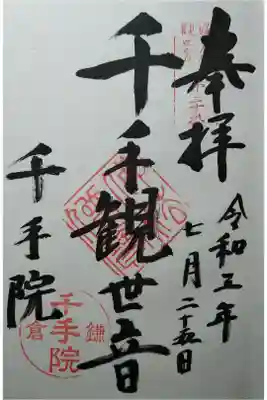 奉拝
令和五年
七月二十五日
千手観世音
千手院
鎌倉
千手院